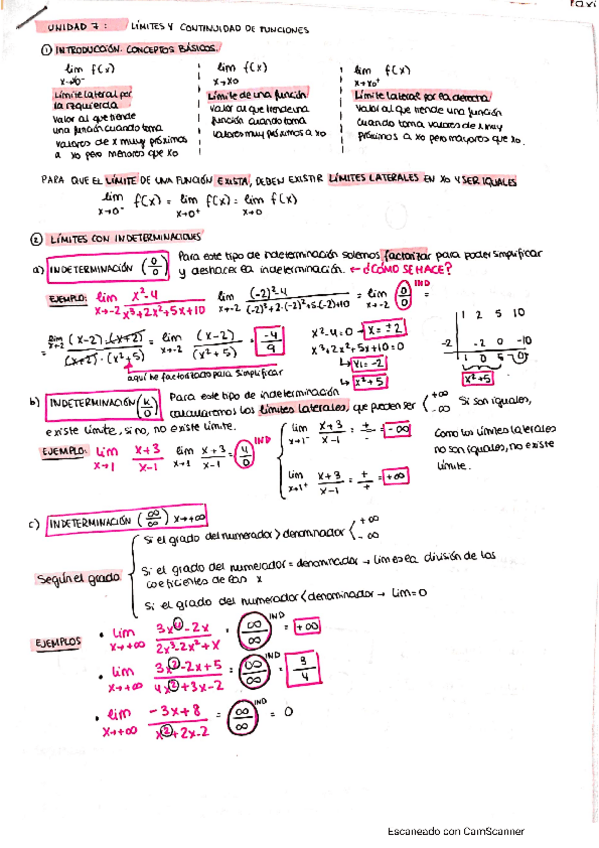 UNIDAD 7: LÍMITES Y CONTINUIDAD DE FUNCIONES
① INTRODUCCIÓN. CONCEPTOS BÁSICOS.
lim f(x) x→x0⁻
Límite lateral por
la izquierda
Valor al que tiende
una función cuando toma
valores de x muy próximos
a x0 pero menores que x0
lim f(x) x→x0
Límite de una función
Valor al que tiende una
función cuando toma
valores muy próximos a x0
lim f(x) x→x0⁺
Límite lateral por la derecha
Valor al que tiende una función
cuando toma valores de x muy
próximos a x0 pero mayores que x0.
PARA QUE EL LÍMITE DE UNA FUNCIÓN EXISTA, DEBEN EXISTIR LÍMITES LATERALES EN X0 Y SER IGUALES
lim x→0⁻ f(x) = lim x→0⁺ f(x) = lim x→0 f(x)
② LÍMITES CON INDETERMINACIONES
a) INDETERMINACIÓN (0/0) Para este tipo de indeterminación solemos factorizar para poder simplificar
y deshacer la indeterminación. ← ¿CÓMO SE HACE?
EJEMPLO: lim x→-2 (x²-4)/(x³+2x²+5x+10) lim x→-2 ((-2)²-4)/((-2)³+2·(-2)²+5·(-2)+10) = lim x→-2 (0/0) IND =
= lim x→-2 ((x-2)·(x+2))/((x+2)·(x²+5)) = lim x→-2 (x-2)/(x²+5) = -4/9
aquí he factorizado para simplificar
x²-4=0 → x=±2
x³+2x²+5x+10=0
↳ x1=-2
↳ x²+5
1 2 5 10
-2 -2 0 -10
1 0 5 0
x²+5
b) INDETERMINACIÓN (K/0) Para este tipo de indeterminación
calcularemos los límites laterales, que pueden ser +∞ -∞ Si son iguales,
existe límite, si no, no existe límite.
EJEMPLO: lim x→1 (x+3)/(x-1) lim x→1 (x+3)/(x-1) = (4/0) IND
lim x→1⁻ (x+3)/(x-1) = +/- = -∞
lim x→1⁺ (x+3)/(x-1) = +/+ = +∞
Como los límites laterales
no son iguales, no existe
límite.
c) INDETERMINACIÓN (∞/∞) x→+∞
Según el grado
Si el grado del numerador > denominador +∞ -∞
Si el grado del numerador = denominador → lim es la división de los
coeficientes de las x
Si el grado del numerador < denominador → lim=0
EJEMPLOS
• lim x→+∞ (3x⁴-2x)/(2x³-2x²+x) = (∞/∞) IND = +∞
• lim x→+∞ (3x²-2x+5)/(4x²+3x-2) = (∞/∞) IND = 3/4
• lim x→+∞ (-3x+8)/(x²+2x-2) = (∞/∞) IND = 0
Escaneado con CamScanner